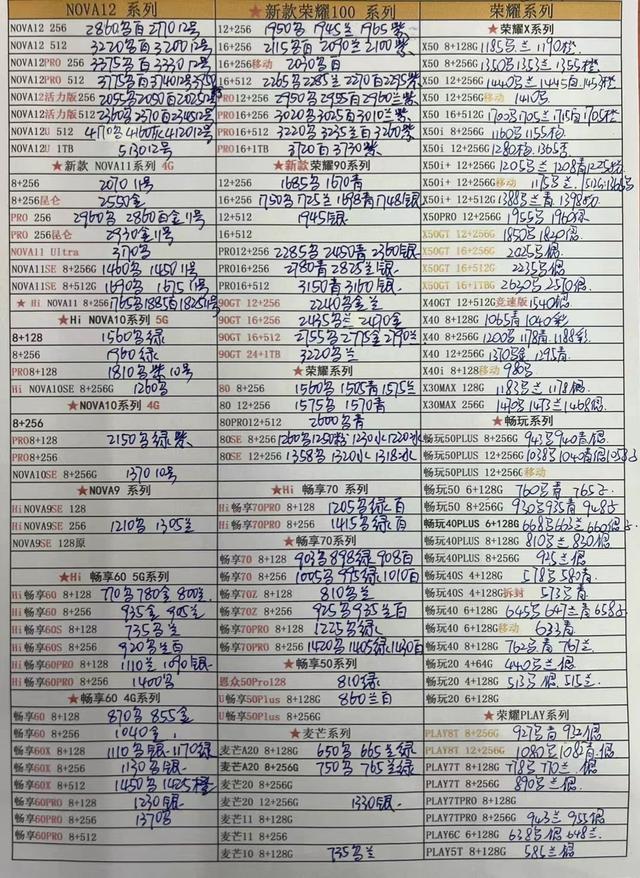 NOVA12 系列
NOVA12 256 2860名百 2770 12号
NOVA12 512 3220名百 3200 12号
NOVA12PRO 256 3375名百 3330 12号
NOVA12PRO 512 3775名百 3740 12号
NOVA12活力版256
NOVA12活力版512
NOVA12U 512
NOVA12U 1TB 5130 12号
★新款 NOVA11系列 4G
8+256 2070 11号
8+256昆仑 2550金
PRO 256 2960名 2860百金11号
PRO 256昆仑 2930金11号
NOVA11 Ultra 3710名
NOVA11SE 8+256G 1460名 1450 11号
NOVA11SE 8+512G 1690名 1675 11号
★ Hi NOVA11 8+256 1765名
★Hi NOVA10系列 5G
8+128 1560名绿
8+256 1960绿
PRO8+128 1810名紫 10号
Hi NOVA10SE 8+256G 1260名
★NOVA10系列 4G
8+256
PRO8+128 2150名绿紫
PRO8+256
NOVA10SE 8+256G 1370 10号
★NOVA9 系列
Hi NOVA9SE 128
Hi NOVA9SE 256 1210名 1305兰
NOVA9SE 128原
★Hi 畅享60 5G系列
Hi畅享60 8+128 770名 780金 800兰
Hi畅享60 8+256 935金 905兰
Hi畅享60S 8+128 735名兰
Hi畅享60S 8+256 920名兰百
Hi畅享60PRO 8+128 1110兰 1090银
Hi畅享60PRO 8+256 1400名
★畅享60 4G系列
畅享60 8+128 870名 855金
畅享60 8+256 1040金
畅享60X 8+128 1110名银 1170绿
畅享60X 8+256 1130名银
畅享60X 8+512 1450名 1425橙
畅享60PRO 8+128 1230银
畅享60PRO 8+256 1370名
畅享60PRO 8+512
★新款荣耀100 系列
12+256 1950名 1945兰 1965紫
16+256 2115名百 2090兰 2100紫
16+256移动 2030名百
16+512 2265名 2285兰 2270百 2295紫
PRO12+256 2950名 2955百 2960兰
PRO16+256 3020名 3025百 3010兰
PRO16+512 3220名 3235兰百 3260紫
PRO16+1TB 3720百 3730紫
★新款荣耀90系列
12+256 1685名 1670青
16+256 1750名 1725兰 1698青 1748银
12+512 1945银
16+512
PRO12+256 2285名 2450青 2360银
PRO16+256 2780青 2825兰银
PRO16+512 3150青 3160银
90GT 12+256 2240名金兰
90GT 16+256 2435名兰 2470金
90GT 16+512 2755名 2775金 2790兰
90GT 24+1TB 3220名兰
★荣耀系列
80 8+256 1560名 1505青 1575兰
80 12+256 1575名 1570青
80PRO12+512 2600名青
80SE 8+256
80SE 12+256 1358名 1320水 1318水
★Hi 畅享70 系列
Hi 畅享70PRO 8+128 1205名绿百
Hi 畅享70PRO 8+256 1415名绿百
★畅享70系列
畅享70 8+128 903名 898绿 908百
畅享70 8+256 1005名 995绿 1010百
畅享70Z 8+128 810名兰
畅享70Z 8+256 925名 935兰百
畅享70PRO 8+128 1225名绿
畅享70PRO 8+256 1420名 1405绿 1430百
★畅享50系列
恩众50Pro128 810绿
U畅享50Plus 8+128G 860兰百
U畅享50Plus 8+256G
★麦芒系列
麦芒A20 8+128G 650名 665兰绿
麦芒A20 8+256G 750名 765兰绿
麦芒20 8+256G
麦芒20 12+256G 1330银
麦芒11 8+128G
麦芒11 8+256G
麦芒10 8+128G 735名兰
荣耀系列
★荣耀X系列
X50 8+128G 1185名兰 1190橙
X50 8+256G 1350名 1353兰 1355橙
X50 12+256G 1440名兰 1445百
X50 12+256G移动 1410名
X50 16+512G 1700名
X50i 8+256G 1160名 1155橙
X50i 12+256G 1280橙 1365杏
X50i+ 12+256G 1205名兰 1208青
X50i+ 12+256G移动
X50i+ 12+512G
X50PRO 12+256G 1955名 1960银
X50GT 12+256G 1850名 1820银
X50GT 16+256G 2025名
X50GT 16+512G 2235名
X50GT 16+1TBG 2620名 2570银
X40GT 12+512G竞速版 1540银
X40 8+128G 1065青 1040彩
X40 8+256G 1200名 1178青 1188彩
X40 12+256G 1370名 1295青
X40i 8+128移动 980名
X30MAX 128G 1183名兰 1178银
X30MAX 256G 1470名 1473兰 1468银
★畅玩系列
畅玩50PLUS 8+256G 943名 940青银
畅玩50PLUS 12+256G
畅玩50PLUS 12+256G移动
畅玩50 6+128G 760名青
畅玩50 8+256G 930名 935青
畅玩40PLUS 6+128G 668名 663兰 660银
畅玩40PLUS 8+128G 810名兰 830银
畅玩40PLUS 8+256G 925兰银
畅玩40S 4+128G 578名 580青
畅玩40S 6+128G拆封 573名青
畅玩40 6+128G 645名 647兰青
畅玩40 6+128G移动 633青
畅玩40 8+128G 762名青 767兰
畅玩20 4+64G 440名兰银
畅玩20 4+128G 513名银 515兰
畅玩20 6+128G
★荣耀PLAY系列
PLAY8T 8+256G 927名青 932银
PLAY8T 12+256G 1080名 1082青银
PLAY7T 8+128G 778名 770兰银
PLAY7T 8+256G 890名兰
PLAY7TPRO 8+128G
PLAY7TPRO 8+256G 943兰 955银
PLAY6C 6+128G 638名银 648兰
PLAY5T 8+128G 585兰银